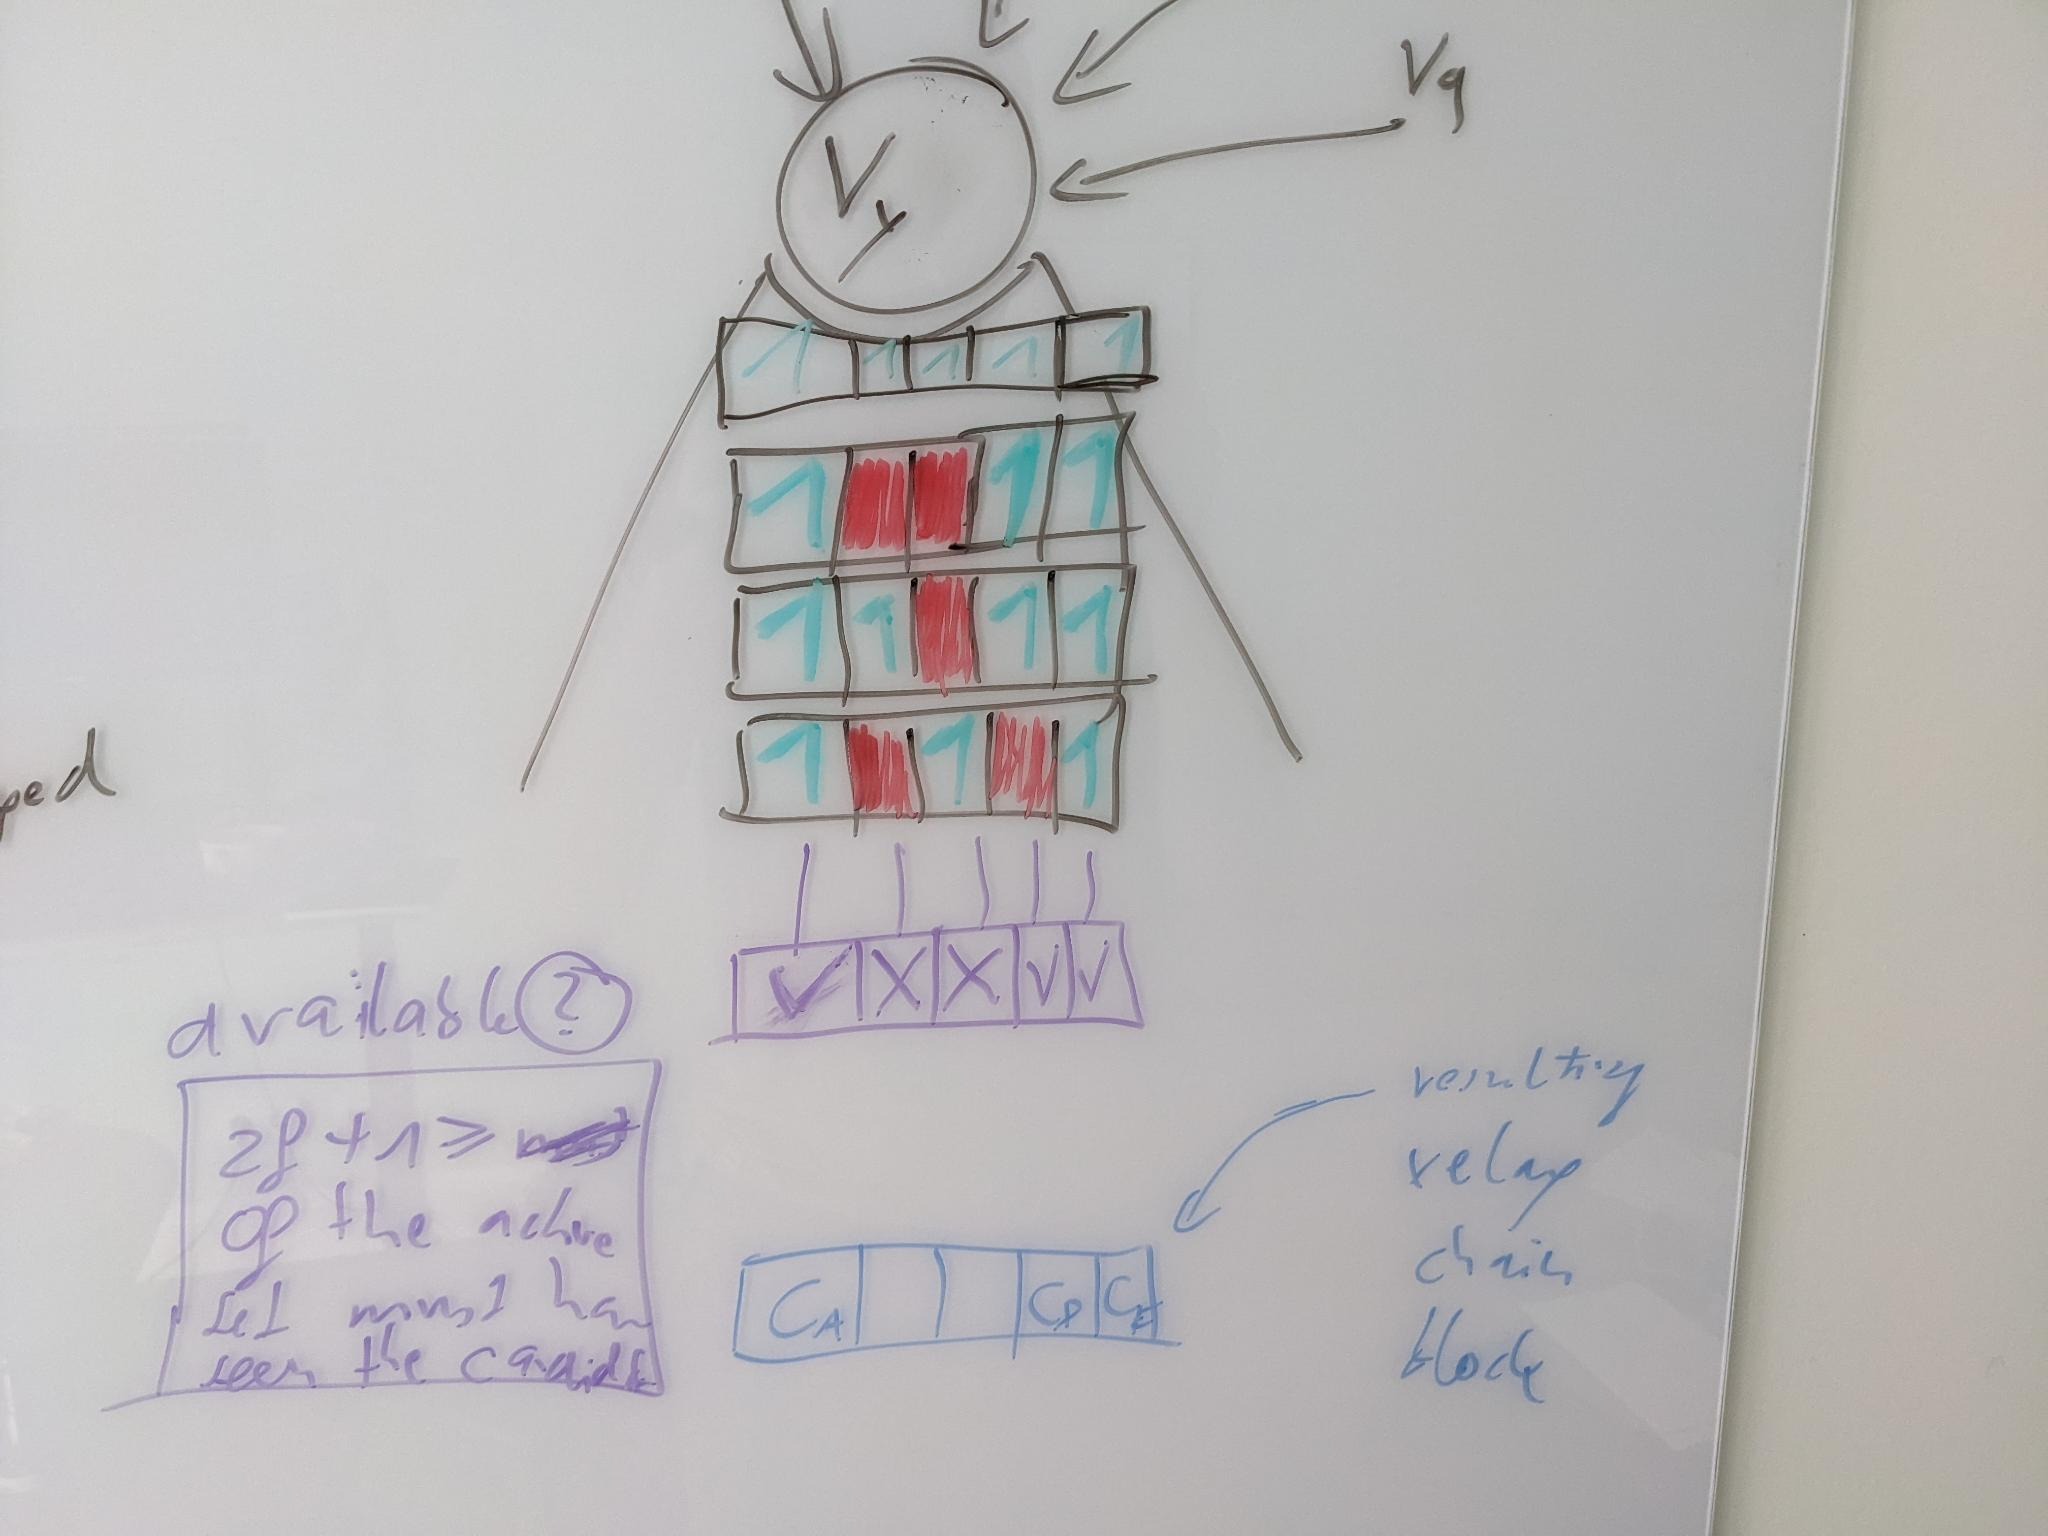 V9
Vy
1 1 1 1 1
1 1 1
1 1 1 1
1 1 1
ped
✓ X X ✓ ✓
available ?
2f + 1 ≥
of the active
set must have
seen the candidate
resulting
relay
chain
block
CA